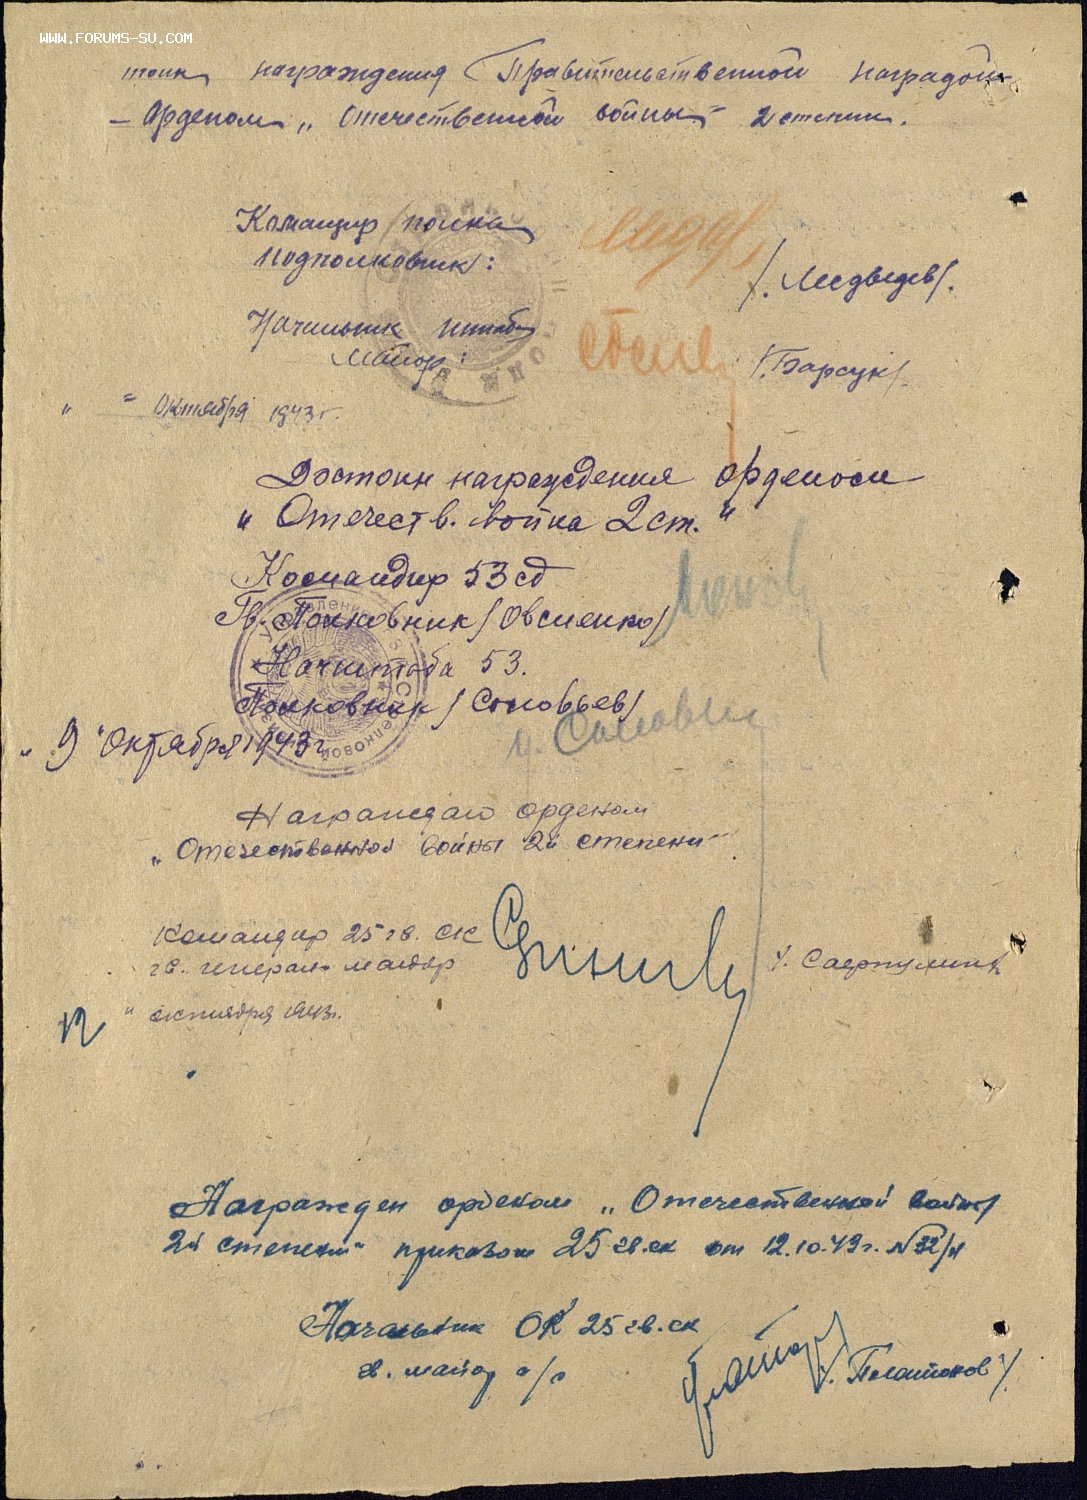 WWW.FORUMS-SU.COM
тоин награждения Правительственной наградой
– Орденом „ Отечественной войны – 2 степени.
Командир полка
подполковник:
/. Медведев/.
Начальник штаба
майор:
/. Барсук/.
„ " Октября 1943 г.
Достоин награждения орденом
„ Отечеств. война 2 ст. "
Командир 53 сд
Гв. Полковник /Овсиенко/
Начштаба 53.
Полковник /Соловьев/
„ 9 " Октября 1943 г.
Награждаю орденом
„ Отечественной войны 2й степени"
Командир 25 гв. СК
гв. генерал-майор
12 " октября 1943г.
Награжден орденом „ Отечественной войны
2й степени" приказом 25 гв. ск от 12.10.43 г. № 32/н
Начальник ОК 25 гв. ск
гв. майор а/с
/. Платонов /.